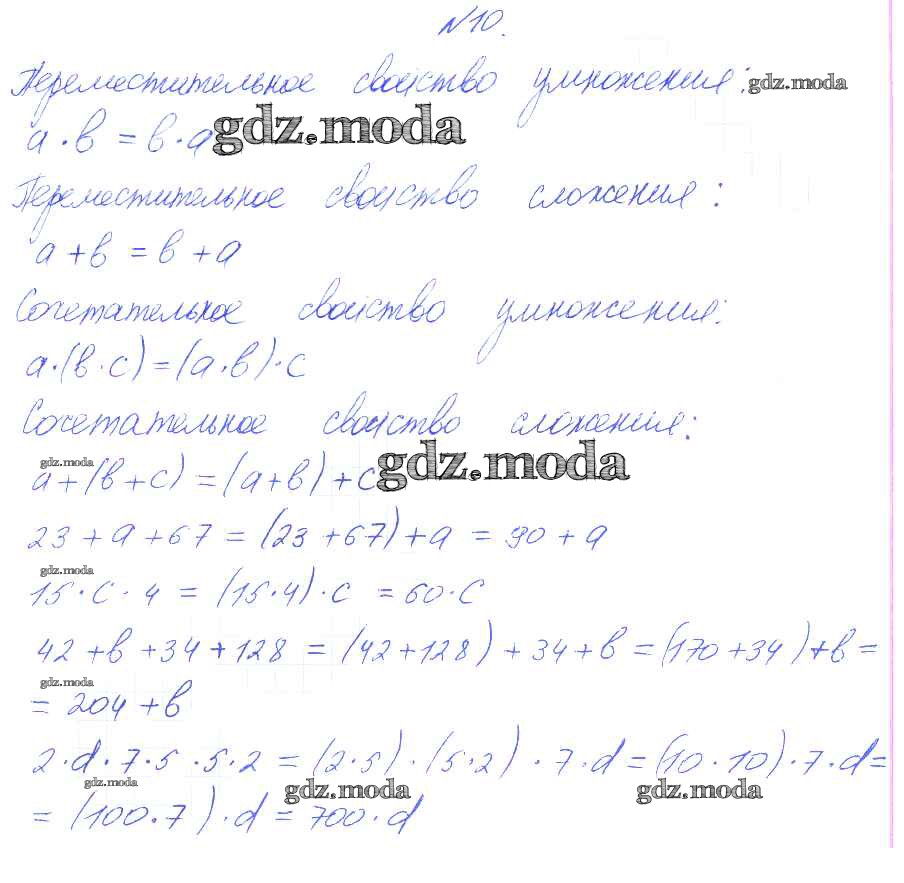 №10.
Переместительное свойство умножения: gdz.moda
a · b = b · a gdz.moda
Переместительное свойство сложения:
a + b = b + a
Сочетательное свойство умножения:
a · (b · c) = (a · b) · c
Сочетательное свойство сложения:
gdz.moda gdz.moda
a + (b + c) = (a + b) + c
23 + a + 67 = (23 + 67) + a = 90 + a
gdz.moda
15 · c · 4 = (15 · 4) · c = 60 · c
42 + b + 34 + 128 = (42 + 128) + 34 + b = (170 + 34) + b =
gdz.moda
= 204 + b
2 · d · 7 · 5 · 5 · 2 = (2 · 5) · (5 · 2) · 7 · d = (10 · 10) · 7 · d =
gdz.moda gdz.moda gdz.moda
= (100 · 7) · d = 700 · d